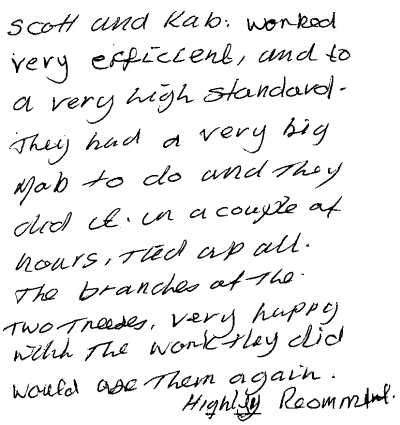 Scott and Kab. worked
very efficcent, and to
a very high standard.
They had a very big
Mob to do and They
did it. in a couple of
hours, tied up all.
The branches of The.
Two Treees, very happy
withh The work they did
would use Them again.
Highly Reommend.